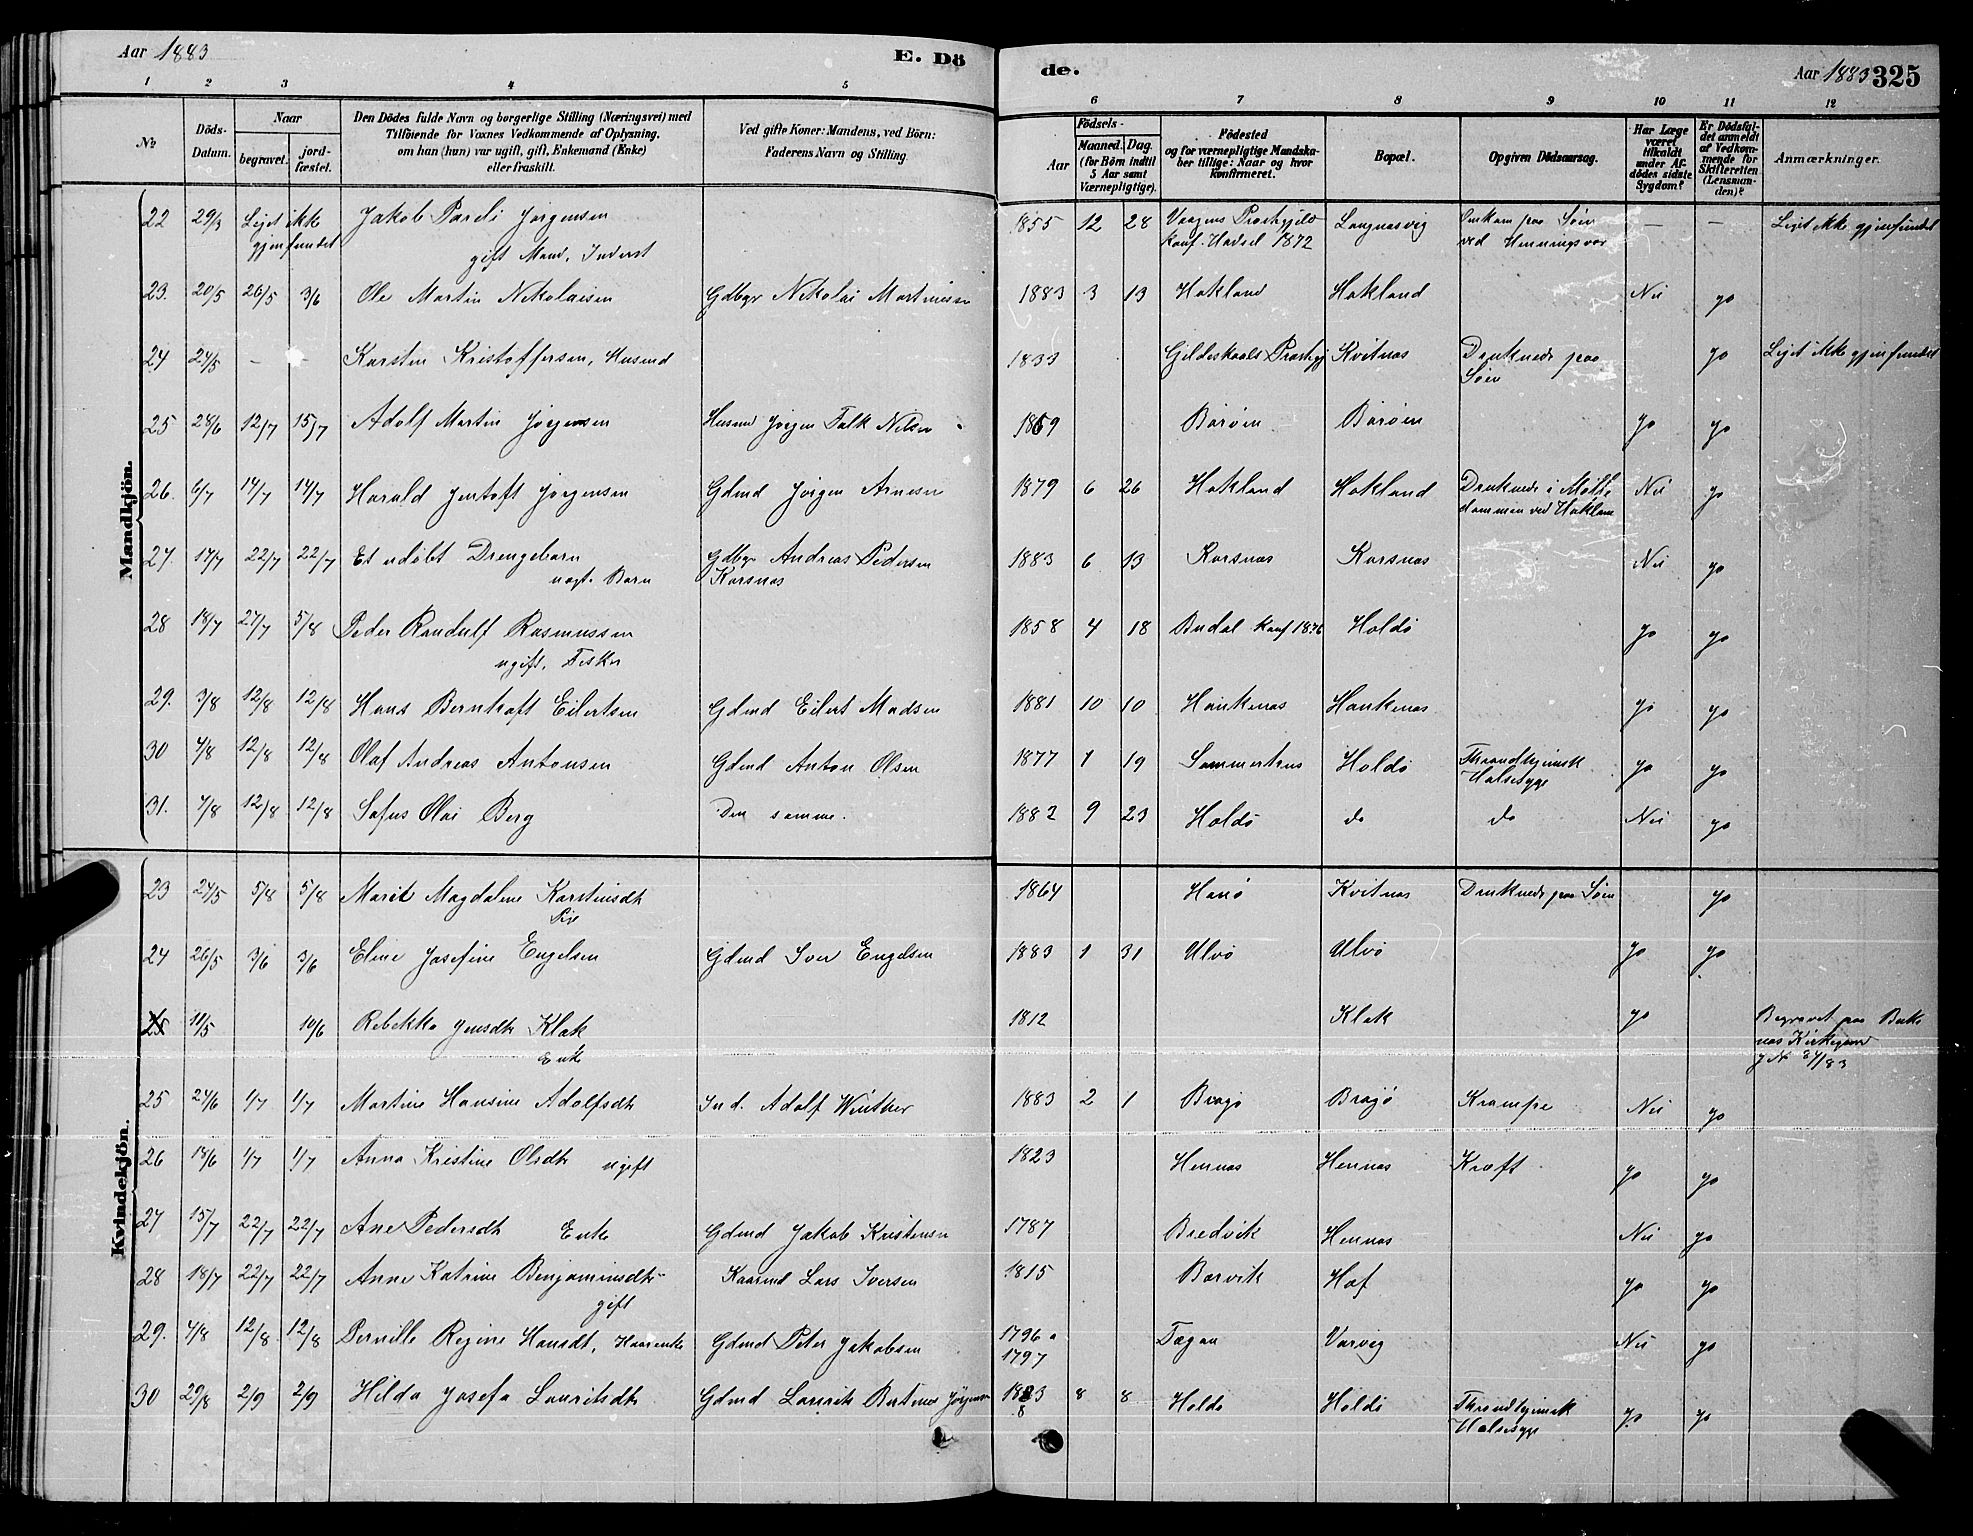 Aar 1883
E. Dö
de.
Aar 1883 325
1 2 3 4 5 6 7 8 9 10 11 12
№
Döds-
Datum.
Naar
begravet.
jord-
fæstet.
Den Dödes fulde Navn og borgerlige Stilling (Næringsvei) med
Tilföiende for Voxnes Vedkommende af Oplysning,
om han (hun) var ugift, gift, Enkemand (Enke)
eller fraskilt.
Ved gifte Koner: Mandens, ved Börn:
Faderens Navn og Stilling.
Födsels-
Aar
Maaned. Dag.
(for Börn indtil
5 Aar samt
Værnepligtige).
Födested
og for værnepligtige Mandska-
ber tillige: Naar og hvor
konfirmeret.
Bopæl.
Opgiven Dödsaarsag.
Har Læge
været
tilkaldt
under Af-
dödes sidste
Sygdom?
Er Dödsfal-
det anmeldt
af Vedkom-
mende for
Skifteretten
(Lensman-
den)?
Anmærkninger.
Mandkjön.
22 29/3 Liget ikke Jakob Jørgensen 1855 12 28 Vaagens Præstgjeld Langnæsvig Omkom paa Søen — — Liget ikke gjenfundet
gjenfundet gift Mand, Inderst konf. Hadsel 1872 ved Henningsvær
23. 20/5 26/5 3/6 Ole Martin Nikolaisen Gdbgr Nikolai Martinsen 1883 3 13 Hokland Hokland Nei ja
24 24/5 — — Karsten Kristoffersen, Husmd 1833 Gildeskaals Præstgj Kvitnæs Druknede paa ja Liget ikke gjenfundet
Søen
25 28/6 12/7 15/7 Adolf Martin Jørgensen Husmd Jørgen Falk Nilsen 1869 Børøen Børøen ja ja
26. 6/7 14/7 14/7 Harald Jentoft Jørgensen Gdmd Jørgen Arnesen 1879 6 26 Hokland Hokland Druknede i Mølle Nei ja
dammen ved Hokland
27. 17/7 22/7 22/7 Et udøbt Drengebarn Gdbgr Andreas Pedersen 1883 6 13 Korsnæs Korsnæs Nei ja
ægte Barn Korsnæs
28 18/7 27/7 5/8 Peder Randulf Rasmussen 1858 4 18 Budal konf 1876 Holdø ja ja
ugift, Fisker
29. 3/8 12/8 12/8 Hans Berntoft Eilertsen Gdmd Eilert Madsen 1881 10 10 Haukenæs Haukenæs ja ja
30 4/8 12/8 12/8 Olaf Andreas Antonsen Gdmd Anton Olsen 1877 1 19 Sommerhus Holdø Throndhjemsk ja ja
Halsesyge
31. 7/8 12/8 12/8 Sofus Olai Berg Den samme. 1882 9 23 Holdø do do Nei ja
Kvindekjön.
23 24/5 5/8 5/8 Marit Magdalene Karstensdt 1864 Hanø Kvitnæs Druknede paa Søen ja
Pige
24 26/5 3/6 3/6 Eline Josefine Engelsen Gdmd Iver Engelsen 1883 1 31 Ulvø Ulvø ja ja
25 11/5 10/6 Rebekka Jensdt Klak 1812 Klak ja Begravet paa
Enke næs Kirkegaard
J № 34/83
25 24/6 1/7 1/7 Martine Hansine Adolfsdt Ind. Adolf Winther 1883 2 1 Brogø Brojø Krampe Nei ja
26 18/6 1/7 1/7 Anna Kristine Olsdt ugift 1823 Hennæs Hennæs Kræft ja ja
27 15/7 22/7 22/7 Ane Pedersdt Enke Gdmd Jakob Kristensen 1787 Bredvik Hennæs Nei ja
28 18/7 22/7 22/7 Anne Katrine Benjaminsdt Kaarmd Lars Iversen 1815 Borvik Haf ja ja
gift
29. 4/8 12/8 12/8 Pernille Regine Hansdt, Kaarenke Gdmd Peter Jakobsen 1796 a Vorvig Nei ja
1797
30 29/8 2/9 2/9 Hilda Josefa Lauritsdt Gdmd Laurits Jørgensen 1883 8 8 Holdø Holdø Throndhjemsk ja ja
8 Halsesyge